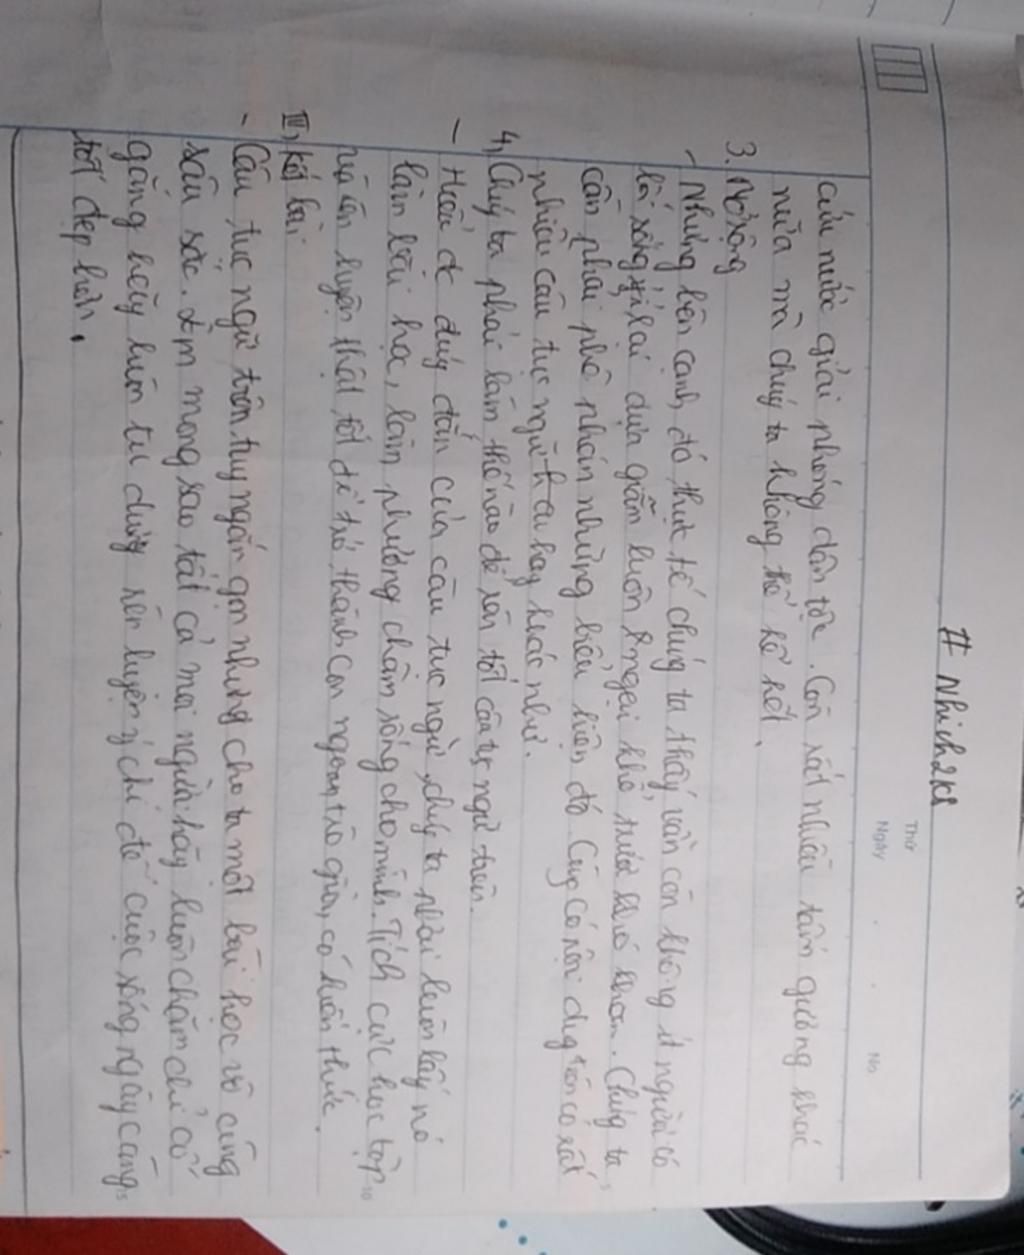 # Nhi ch2k8
Thứ
Ngày . . No
cứu nước giải phóng dân tộc. Còn rất nhiều tấm gương khác
nữa mà chúng ta không thể kể hết.
3. Mở rộng
- Nhưng bên cạnh đó thực tế chúng ta thấy vẫn còn không ít người có
lối sống ỷ lại dựa giẫm luôn ngại khổ trước khó khăn. Chúng ta
cần phải phê phán những biểu hiện đó. Cũng có nội dung trên có rất 5
nhiều câu tục ngữ hay khác như.
4, Chúng ta phải làm thế nào để rèn tốt câu tục ngữ trên.
- Hiểu đc đúng đắn của câu tục ngữ, chúng ta phải luôn lấy nó
làm bài học, làm phương châm sống cho mình. Tích cực học tập 10
và rèn luyện thật tốt để trở thành con ngoan, trò giỏi, có kiến thức.
III, Kết bài.
- Câu tục ngữ trên tuy ngắn gọn nhưng cho ta một bài học vô cùng
sâu sắc. Em mong sao tất cả mọi người hãy luôn chăm chỉ cố
gắng hãy luôn tu dưỡng rèn luyện ý chí để cuộc sống ngày càng 15
tốt đẹp hơn.